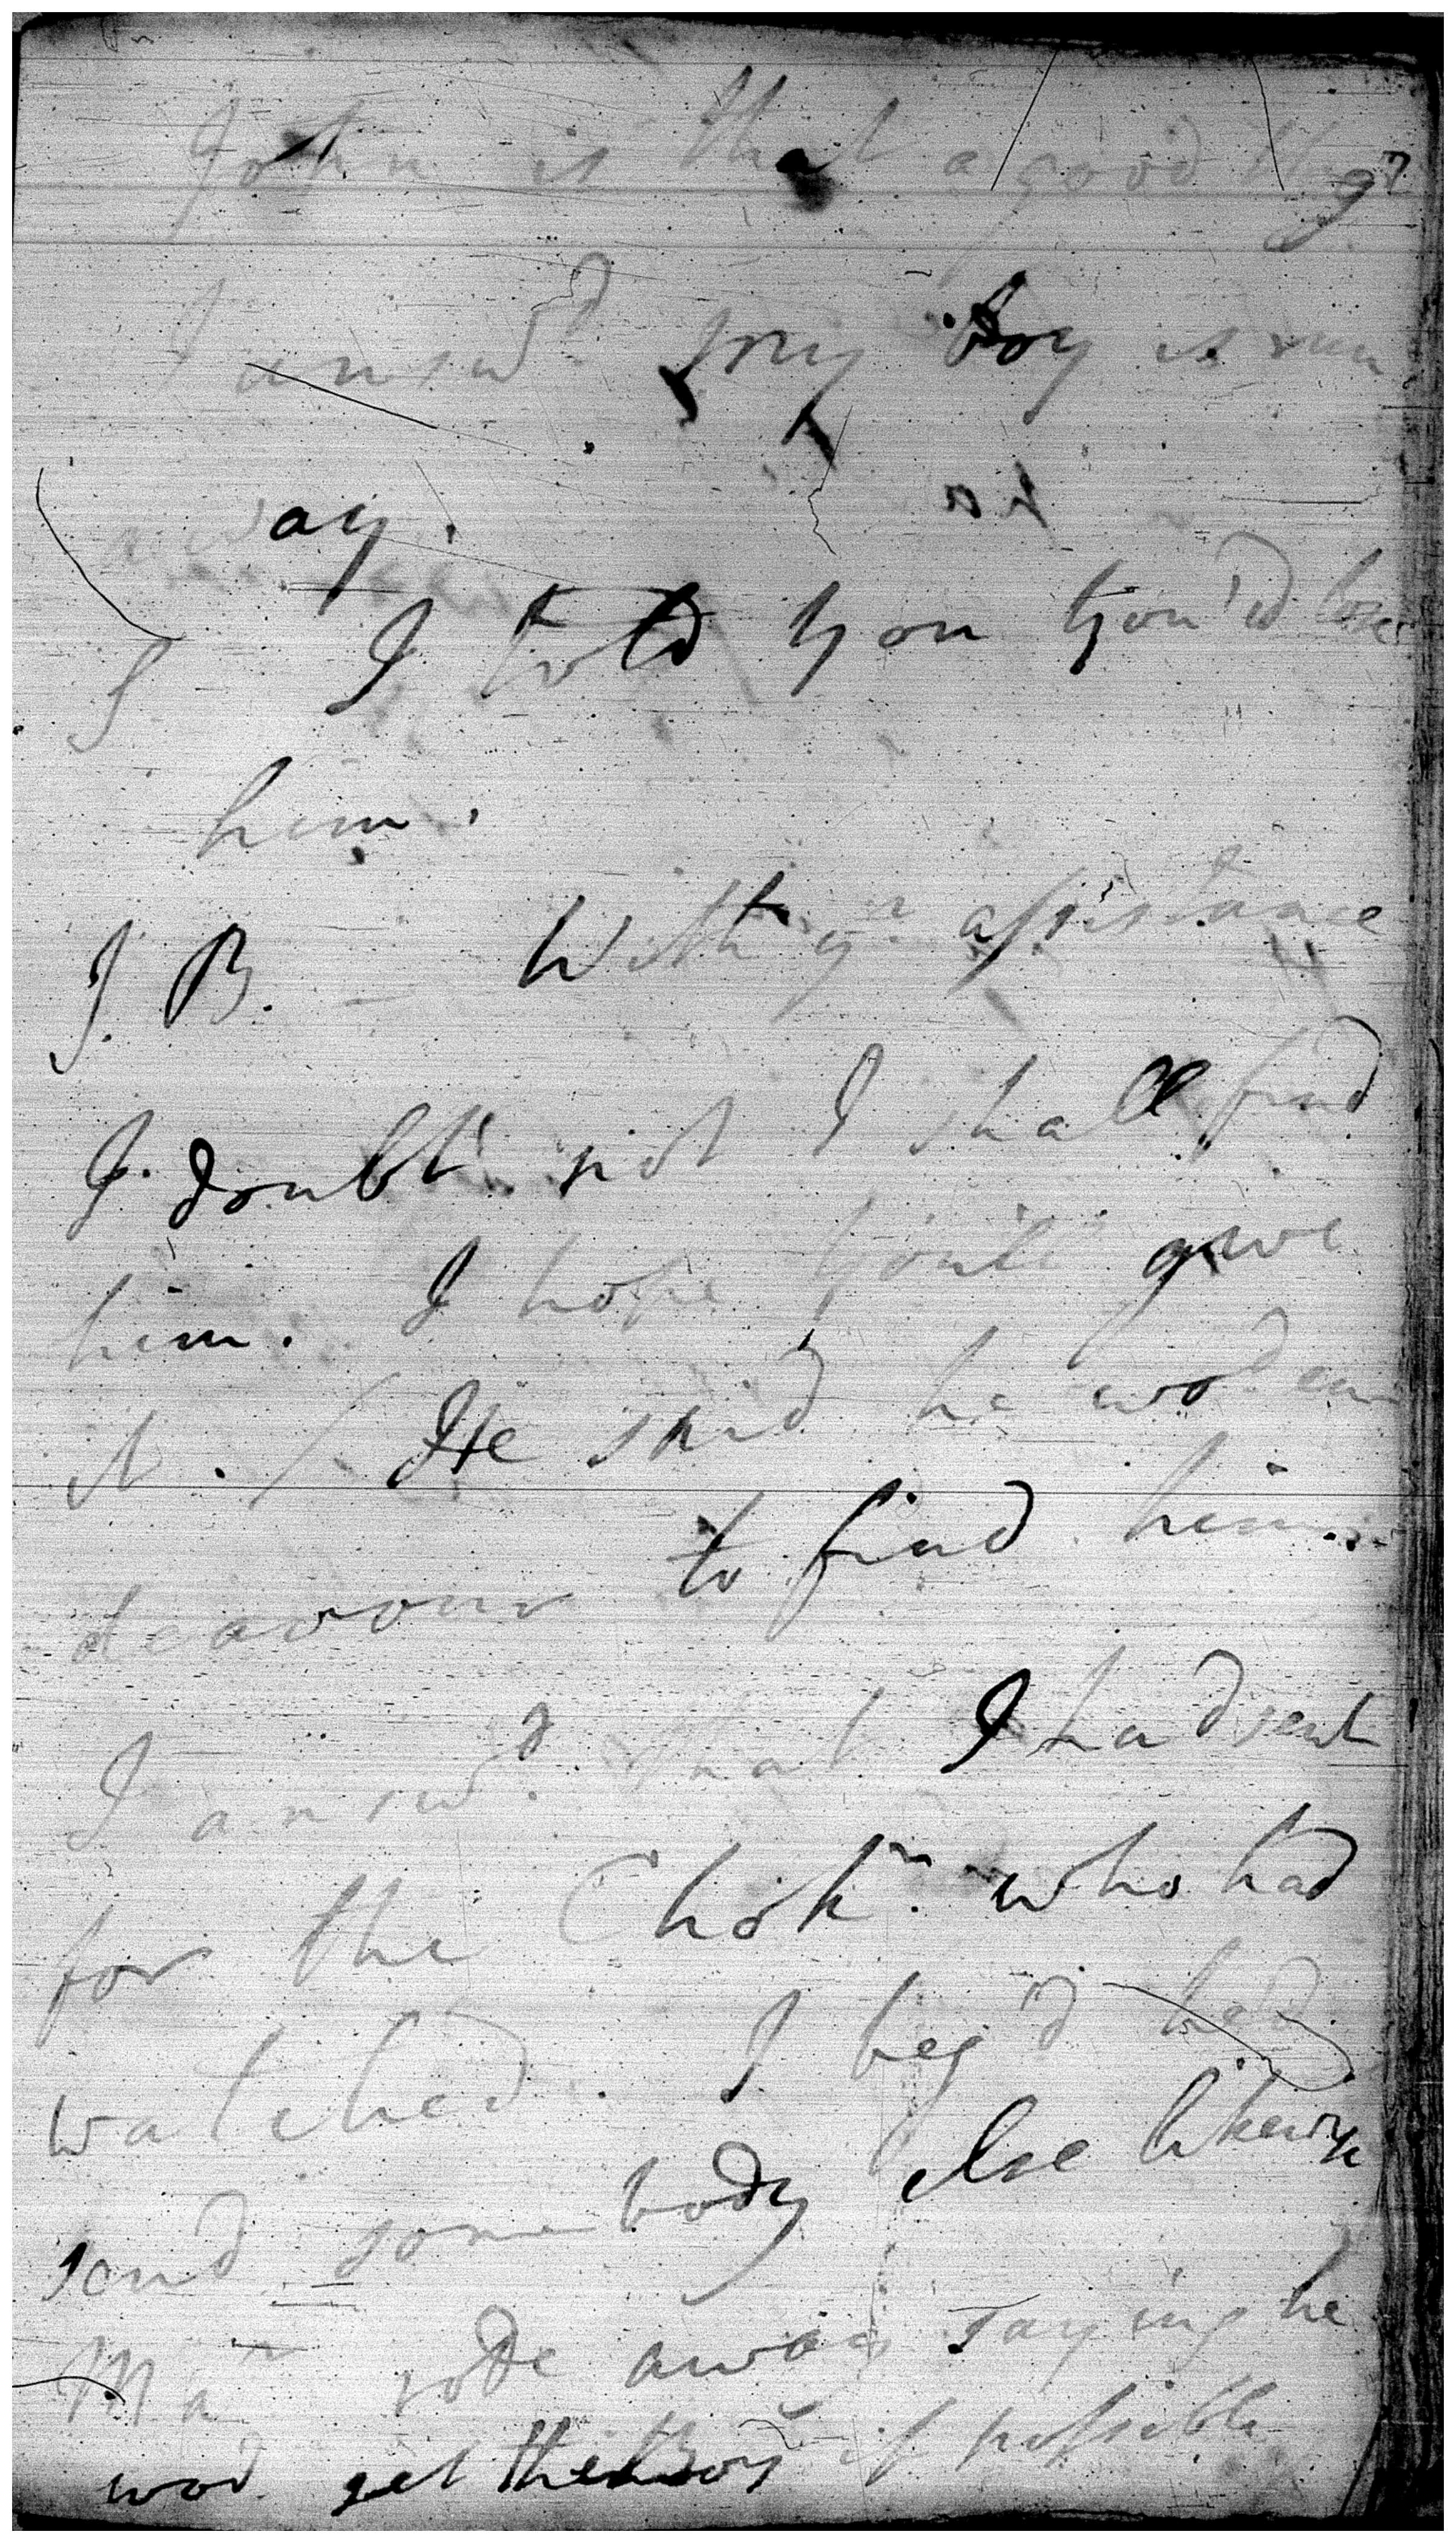 John is that a good thing?
I answd. my boy is run
away.
S I told you you'd lose
him.
J. B. – With yr. assistance
I doubt not I shall find
him. I hope you'll give
it. / He said he wod. en
deavour to find him.
I answd. that I had sent
for the Chokr. who had
watched. I beg'd he'd
send somebody else likewise
Mar rode away saying he
wod. get the boy if possible